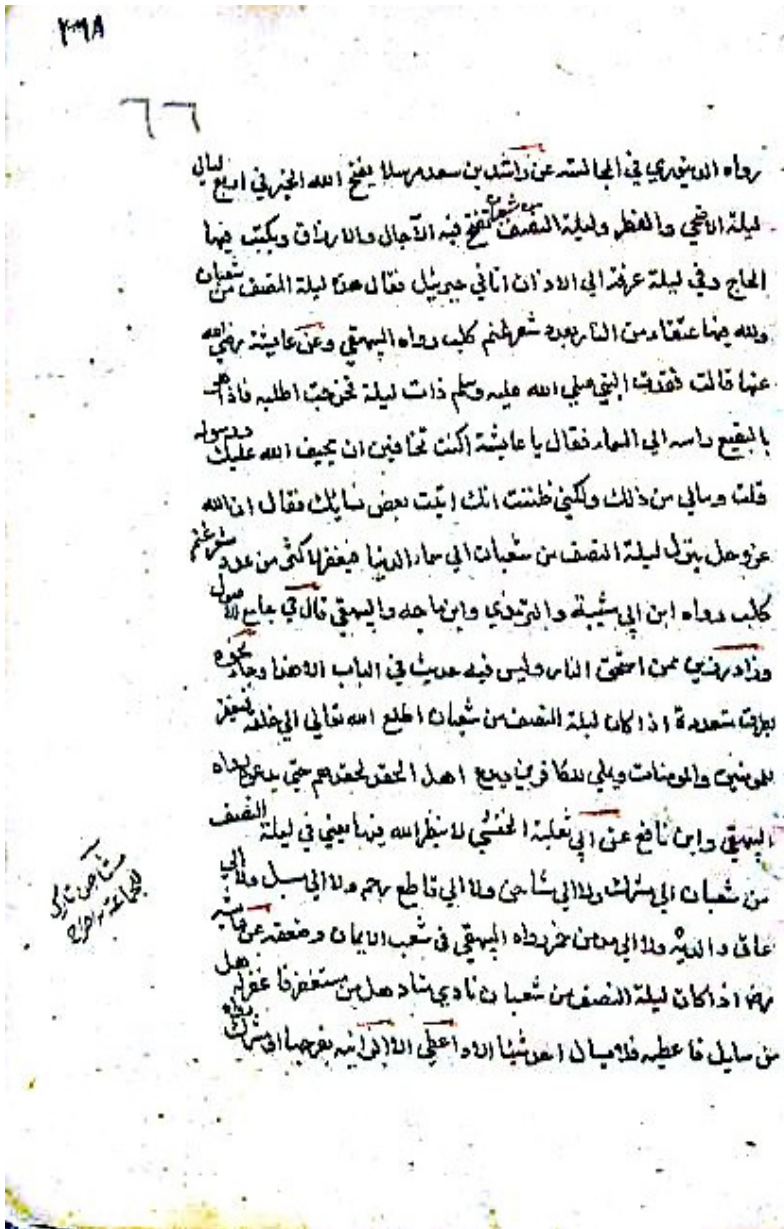 ٢٩٨
٦٦
رواه الدينوري في المجالسة عن راشد بن سعد مرسلا يفتح الله الخير في اربع ليالي
ليلة الاضحي والفطر وليلة النصف من شعبان تفتح فيه الآجال والارزاق ويكتب فيها
الحاج وفي ليلة عرفة الي الاذان اتاني جبرئيل فقال هذه ليلة النصف من شعبان
ولله فيها عتقاء من النار بعدد شعر غنم كلب رواه البيهقي وعن عايشة رضي الله
عنها قالت فقدت النبي صلي الله عليه وسلم ذات ليلة فخرجت اطلبه فاذا هو
بالبقيع راسه الي السماء فقال يا عايشة اكنت تخافين ان يحيف الله عليك ورسوله
قلت ومالي من ذلك ولكني ظننت انك اتيت بعض نسايك فقال ان الله
عز وجل ينزل ليلة النصف من شعبان الي سماء الدنيا فيغفر لاكثر من عدد شعر غنم
كلب رواه ابن ابي شيبة والترمذي وابن ماجه والبيهقي قال في جامع الاصول
وزاد رزين ممن استحق النار وليس فيه حديث في الباب الا هذا وجاء نحوه
بطرق متعددة اذا كان ليلة النصف من شعبان اطلع الله تعالي الي خلقه فيغفر
للمومنين والمومنات ويملي للكافرين ويدع اهل الحقد لحقدهم حتي يدعوه رواه
البيهقي وابن نافع عن ابي ثعلبة الخشني لا ينظر الله فيها يعني في ليلة النصف
من شعبان الي مشرك ولا الي مشاحن ولا الي قاطع رحم ولا الي مسبل ولا الي
عاق والديه ولا الي مدمن خمر رواه البيهقي في شعب الايمان وضعفه عن عايشة
رضه اذا كان ليلة النصف من شعبان نادي مناد هل من مستغفر فاغفر له هل
من سايل فاعطيه فلا يسال احد شيئا الا اعطي الا زانية بفرجها او مشرك رواه
مشاحن تارك
للجماعة